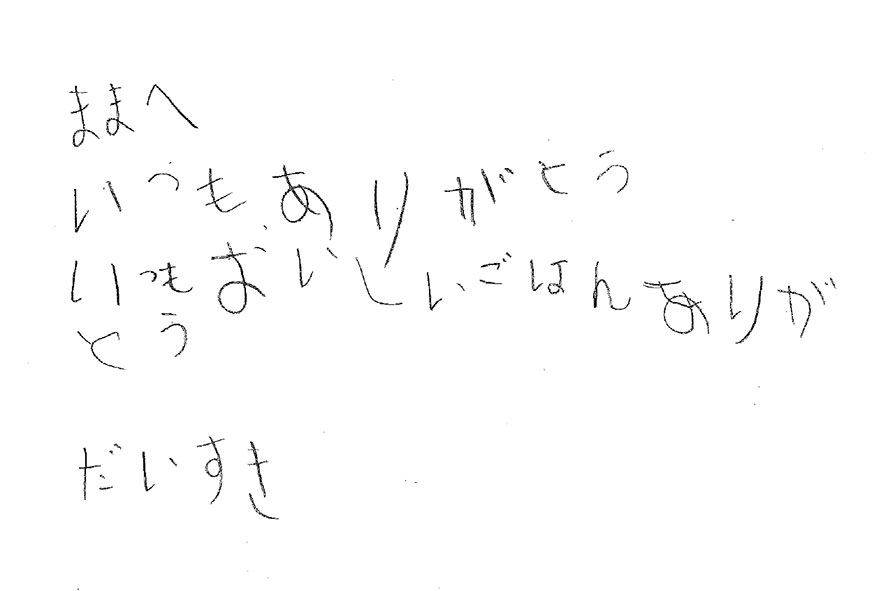 ままへ
いつもありがとう
いつもおいしいごはんありが
とう
だいすき